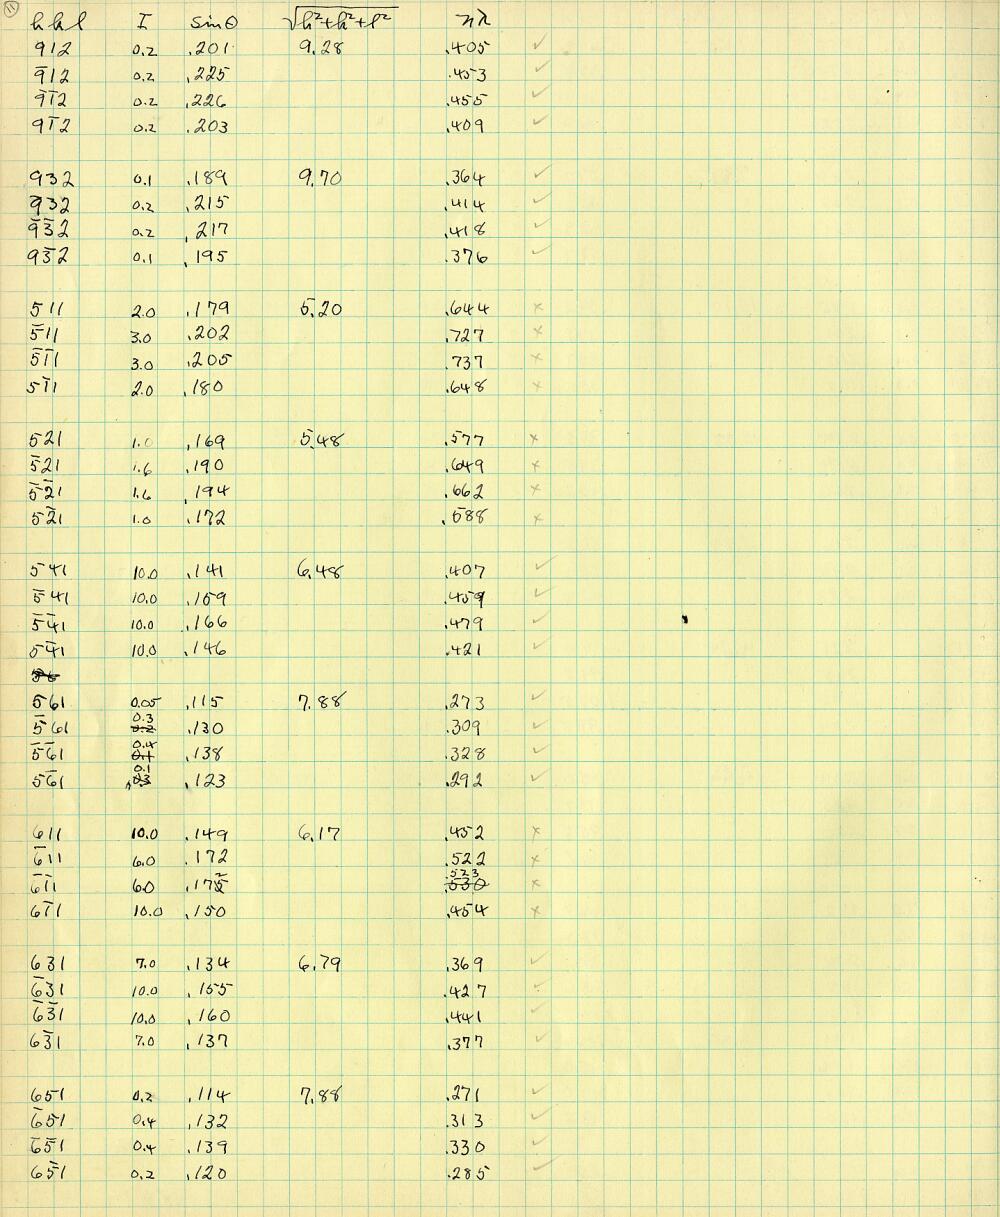 11
h k l I sin θ √h²+k²+l² nλ
912 0.2 .201 9.28 .405 ✓
9̄12 0.2 .225 .453 ✓
9̄1̄2 0.2 .226 .455 ✓
91̄2 0.2 .203 .409 ✓
932 0.1 .189 9.70 .364 ✓
9̄32 0.2 .215 .414 ✓
9̄3̄2 0.2 .217 .418 ✓
93̄2 0.1 .195 .376 ✓
511 2.0 .179 5.20 .644 ×
5̄11 3.0 .202 .727 ×
5̄1̄1 3.0 .205 .737 ×
51̄1 2.0 .180 .648 ×
521 1.0 .169 5.48 .577 ×
5̄21 1.6 .190 .649 ×
5̄2̄1 1.6 .194 .662 ×
52̄1 1.0 .172 .588 ×
541 10.0 .141 6.48 .407 ✓
5̄41 10.0 .159 .459 ✓
5̄4̄1 10.0 .166 .479 ✓
54̄1 10.0 .146 .421 ✓
561 0.05 .115 7.88 .273 ✓
5̄61 0.3 .130 .309 ✓
5̄6̄1 0.4 .138 .328 ✓
56̄1 0.1 .123 .292 ✓
611 10.0 .149 6.17 .452 ×
6̄11 6.0 .172 .522 ×
6̄1̄1 6.0 .172 .523 ×
61̄1 10.0 .150 .454 ×
631 7.0 .134 6.79 .369 ✓
6̄31 10.0 .155 .427 ✓
6̄3̄1 10.0 .160 .441 ✓
63̄1 7.0 .137 .377 ✓
651 0.2 .114 7.88 .271 ✓
6̄51 0.4 .132 .313 ✓
6̄5̄1 0.4 .139 .330 ✓
65̄1 0.2 .120 .285 ✓